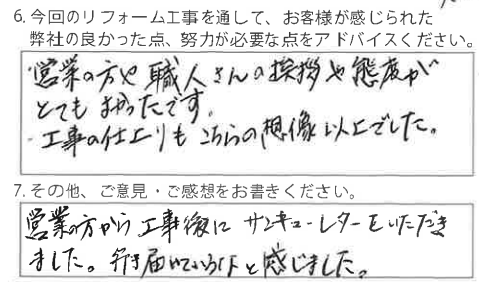 6. 今回のリフォーム工事を通して、お客様が感じられた
弊社の良かった点、努力が必要な点をアドバイスください。
・営業の方や職人さんの挨拶や態度が
とてもよかったです。
・工事の仕上りもこちらの想像以上でした。
7. その他、ご意見・ご感想をお書きください。
営業の方から工事後にサンキューレターをいただき
ました。行き届いているなと感じました。